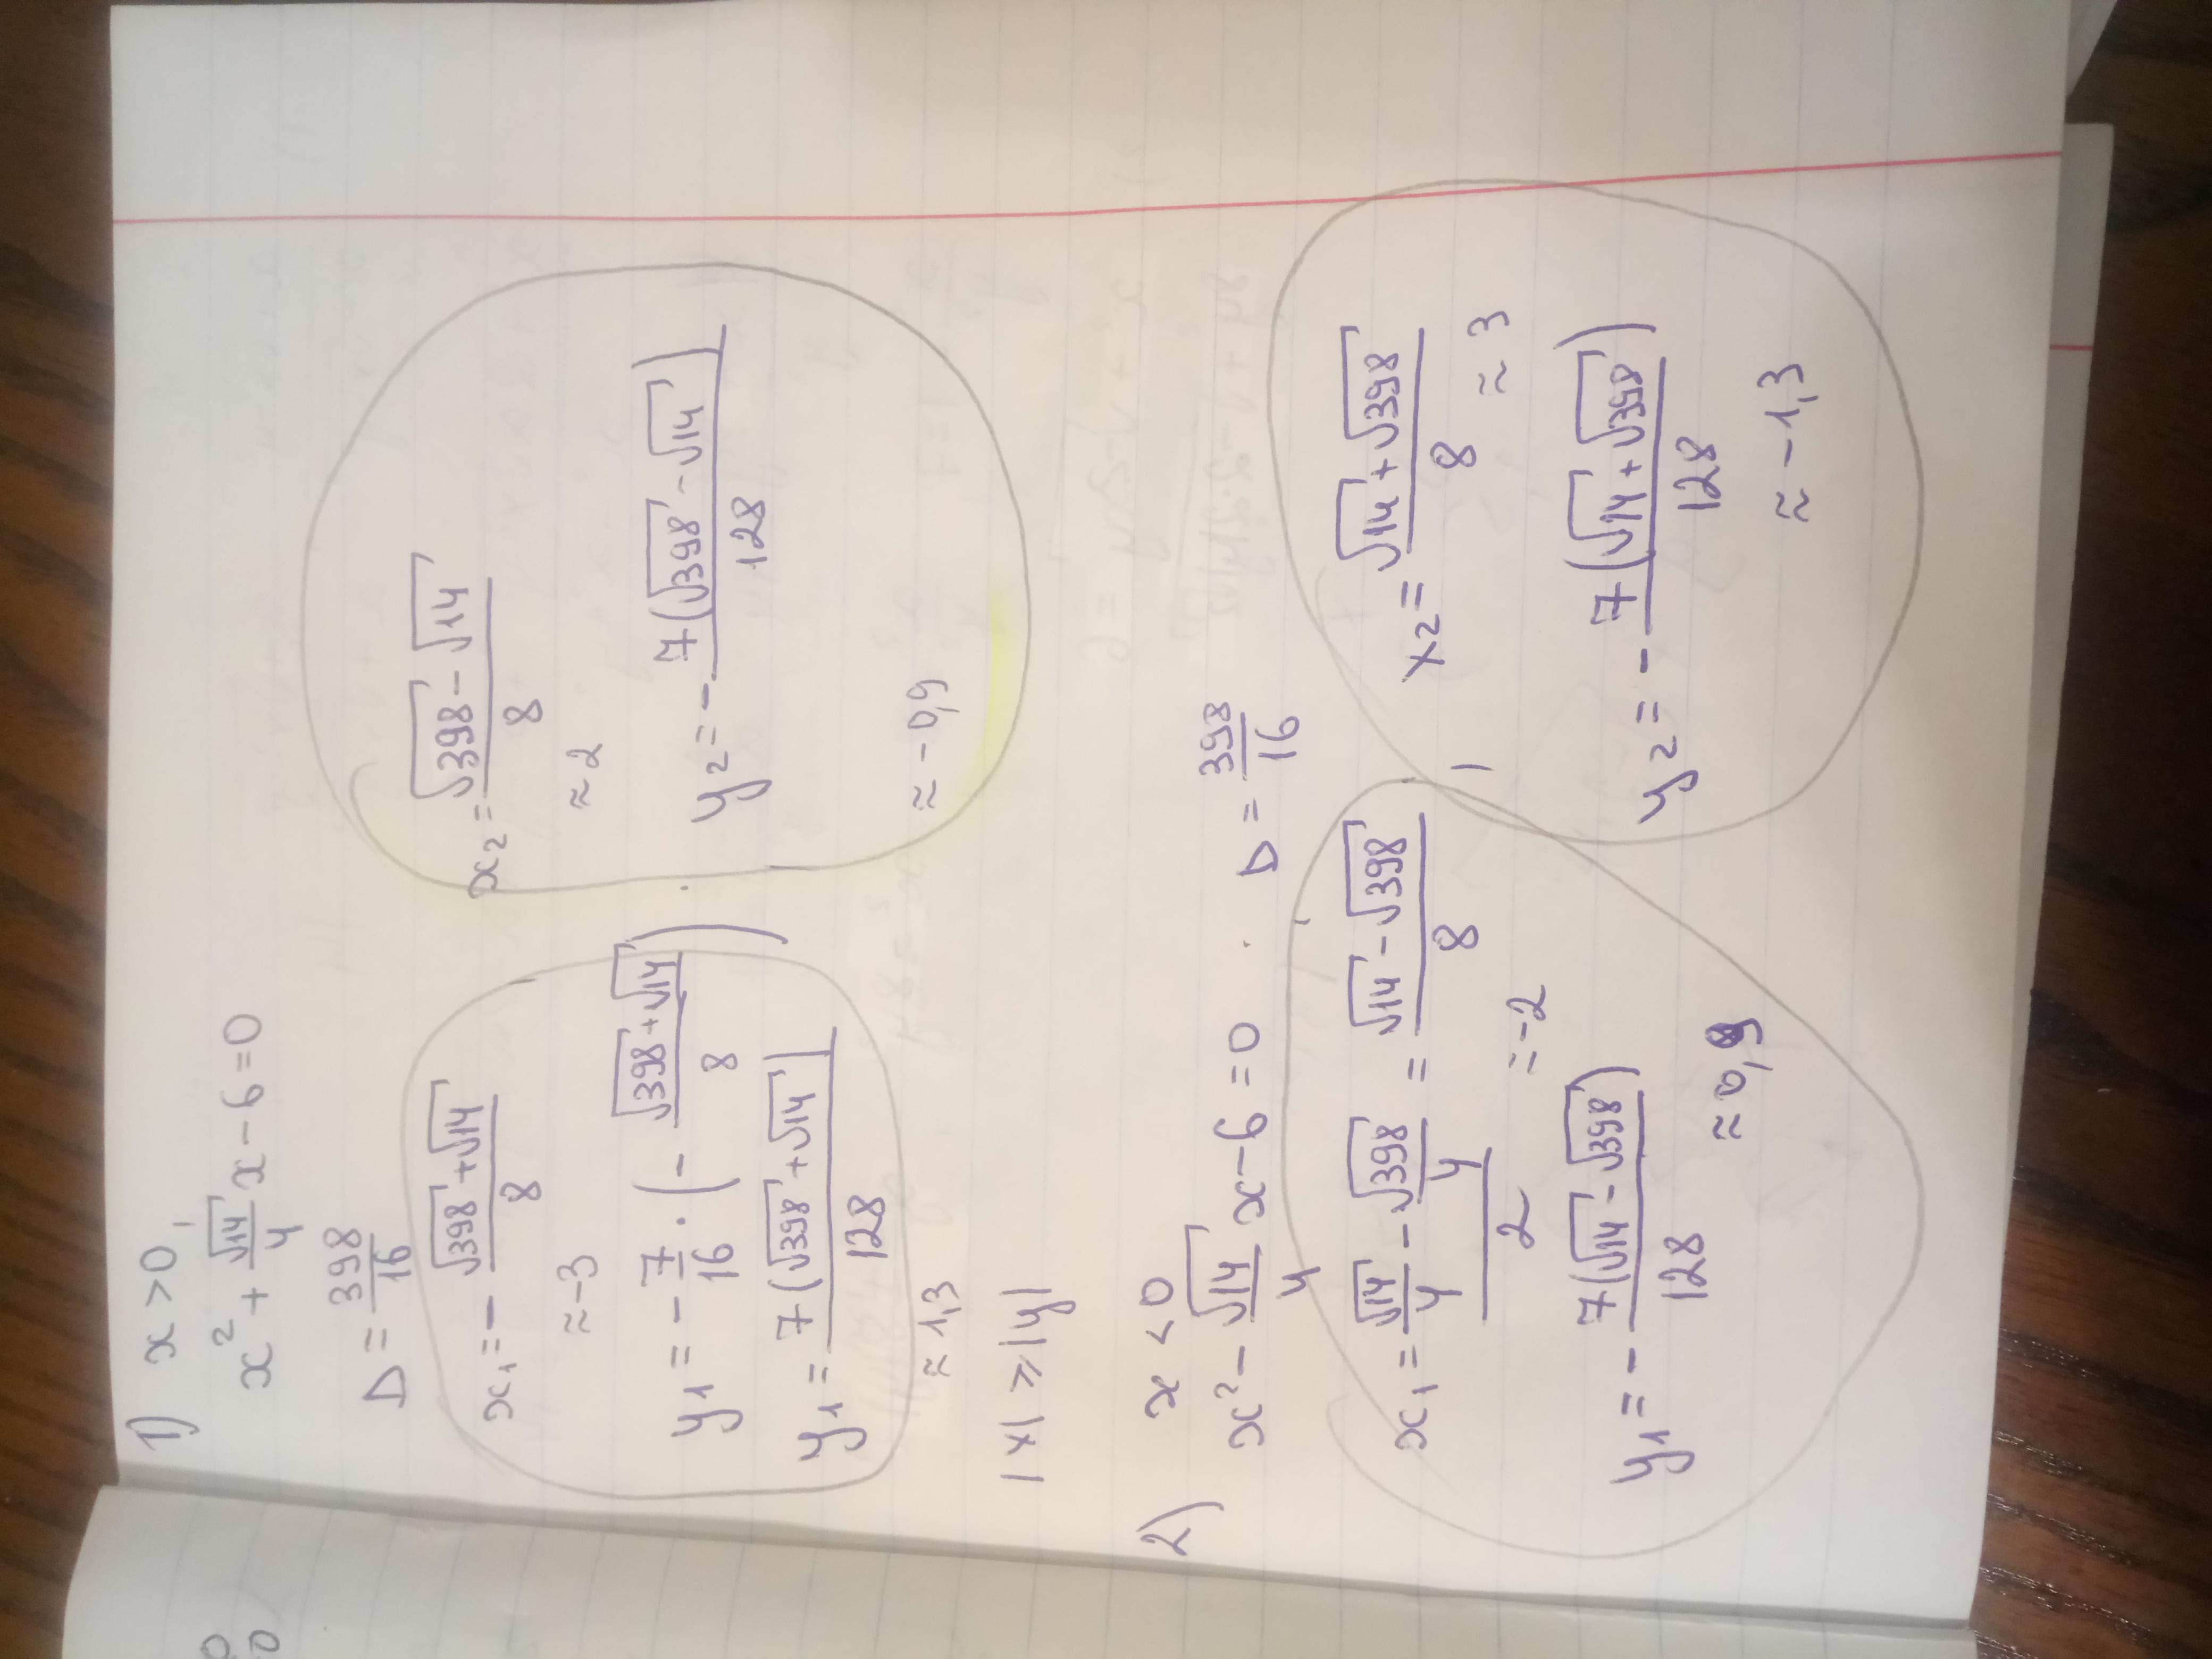 1) x > 0
x² + √14/4 x − 6 = 0
D = 398/16
x₁ = − (√398 + √14)/8
≈ −3
y₁ = − 7/16 · (− (√398 + √14)/8)
y₁ = 7(√398 + √14)/128
≈ 1,3
x₂ = (√398 − √14)/8
≈ 2
y₂ = − 7(√398 − √14)/128
≈ −0,9
|x| ≥ |y|
2) x < 0
x² − √14/4 x − 6 = 0 D = 398/16
x₁ = (√14/4 − √398/4)/2 = (√14 − √398)/8
≈ −2
y₁ = − 7(√14 − √398)/128
≈ 0,9
x₂ = (√14 + √398)/8
≈ 3
y₂ = − 7(√14 + √398)/128
≈ −1,3